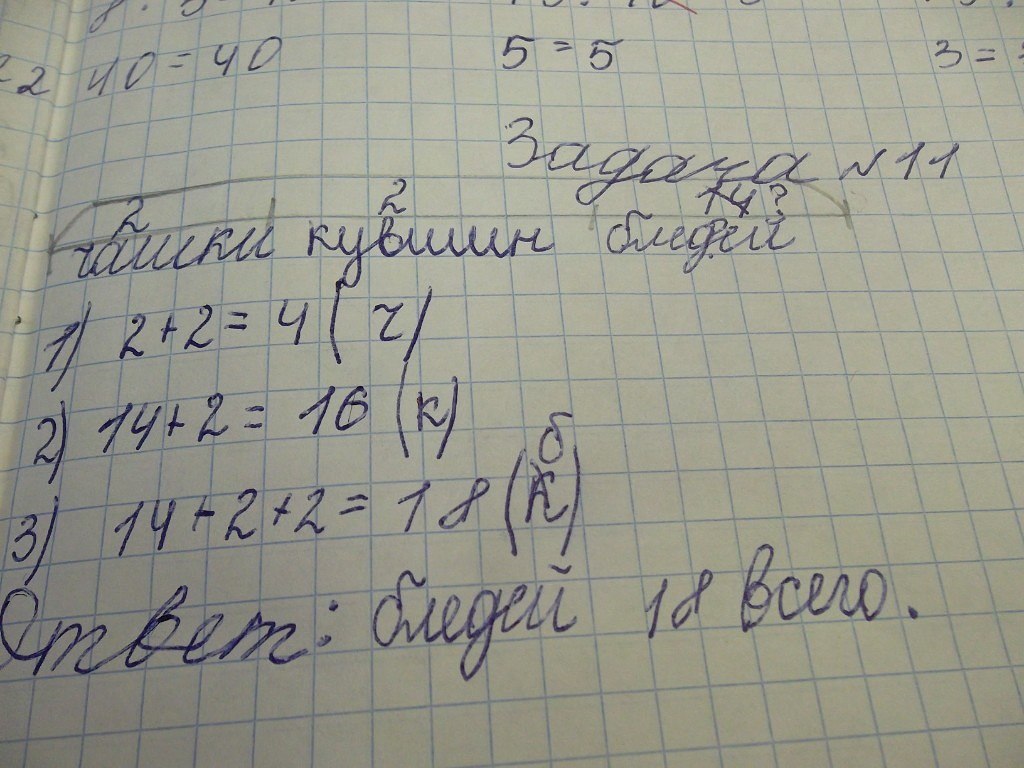 40 = 40 5 = 5 3 =
Задача №11
2 2 14?
чашки кувшин бледей
1) 2+2= 4 (ч)
2) 14+2= 16 (к)
б
3) 14+2+2= 18 (к)
Ответ: бледей 18 всего.